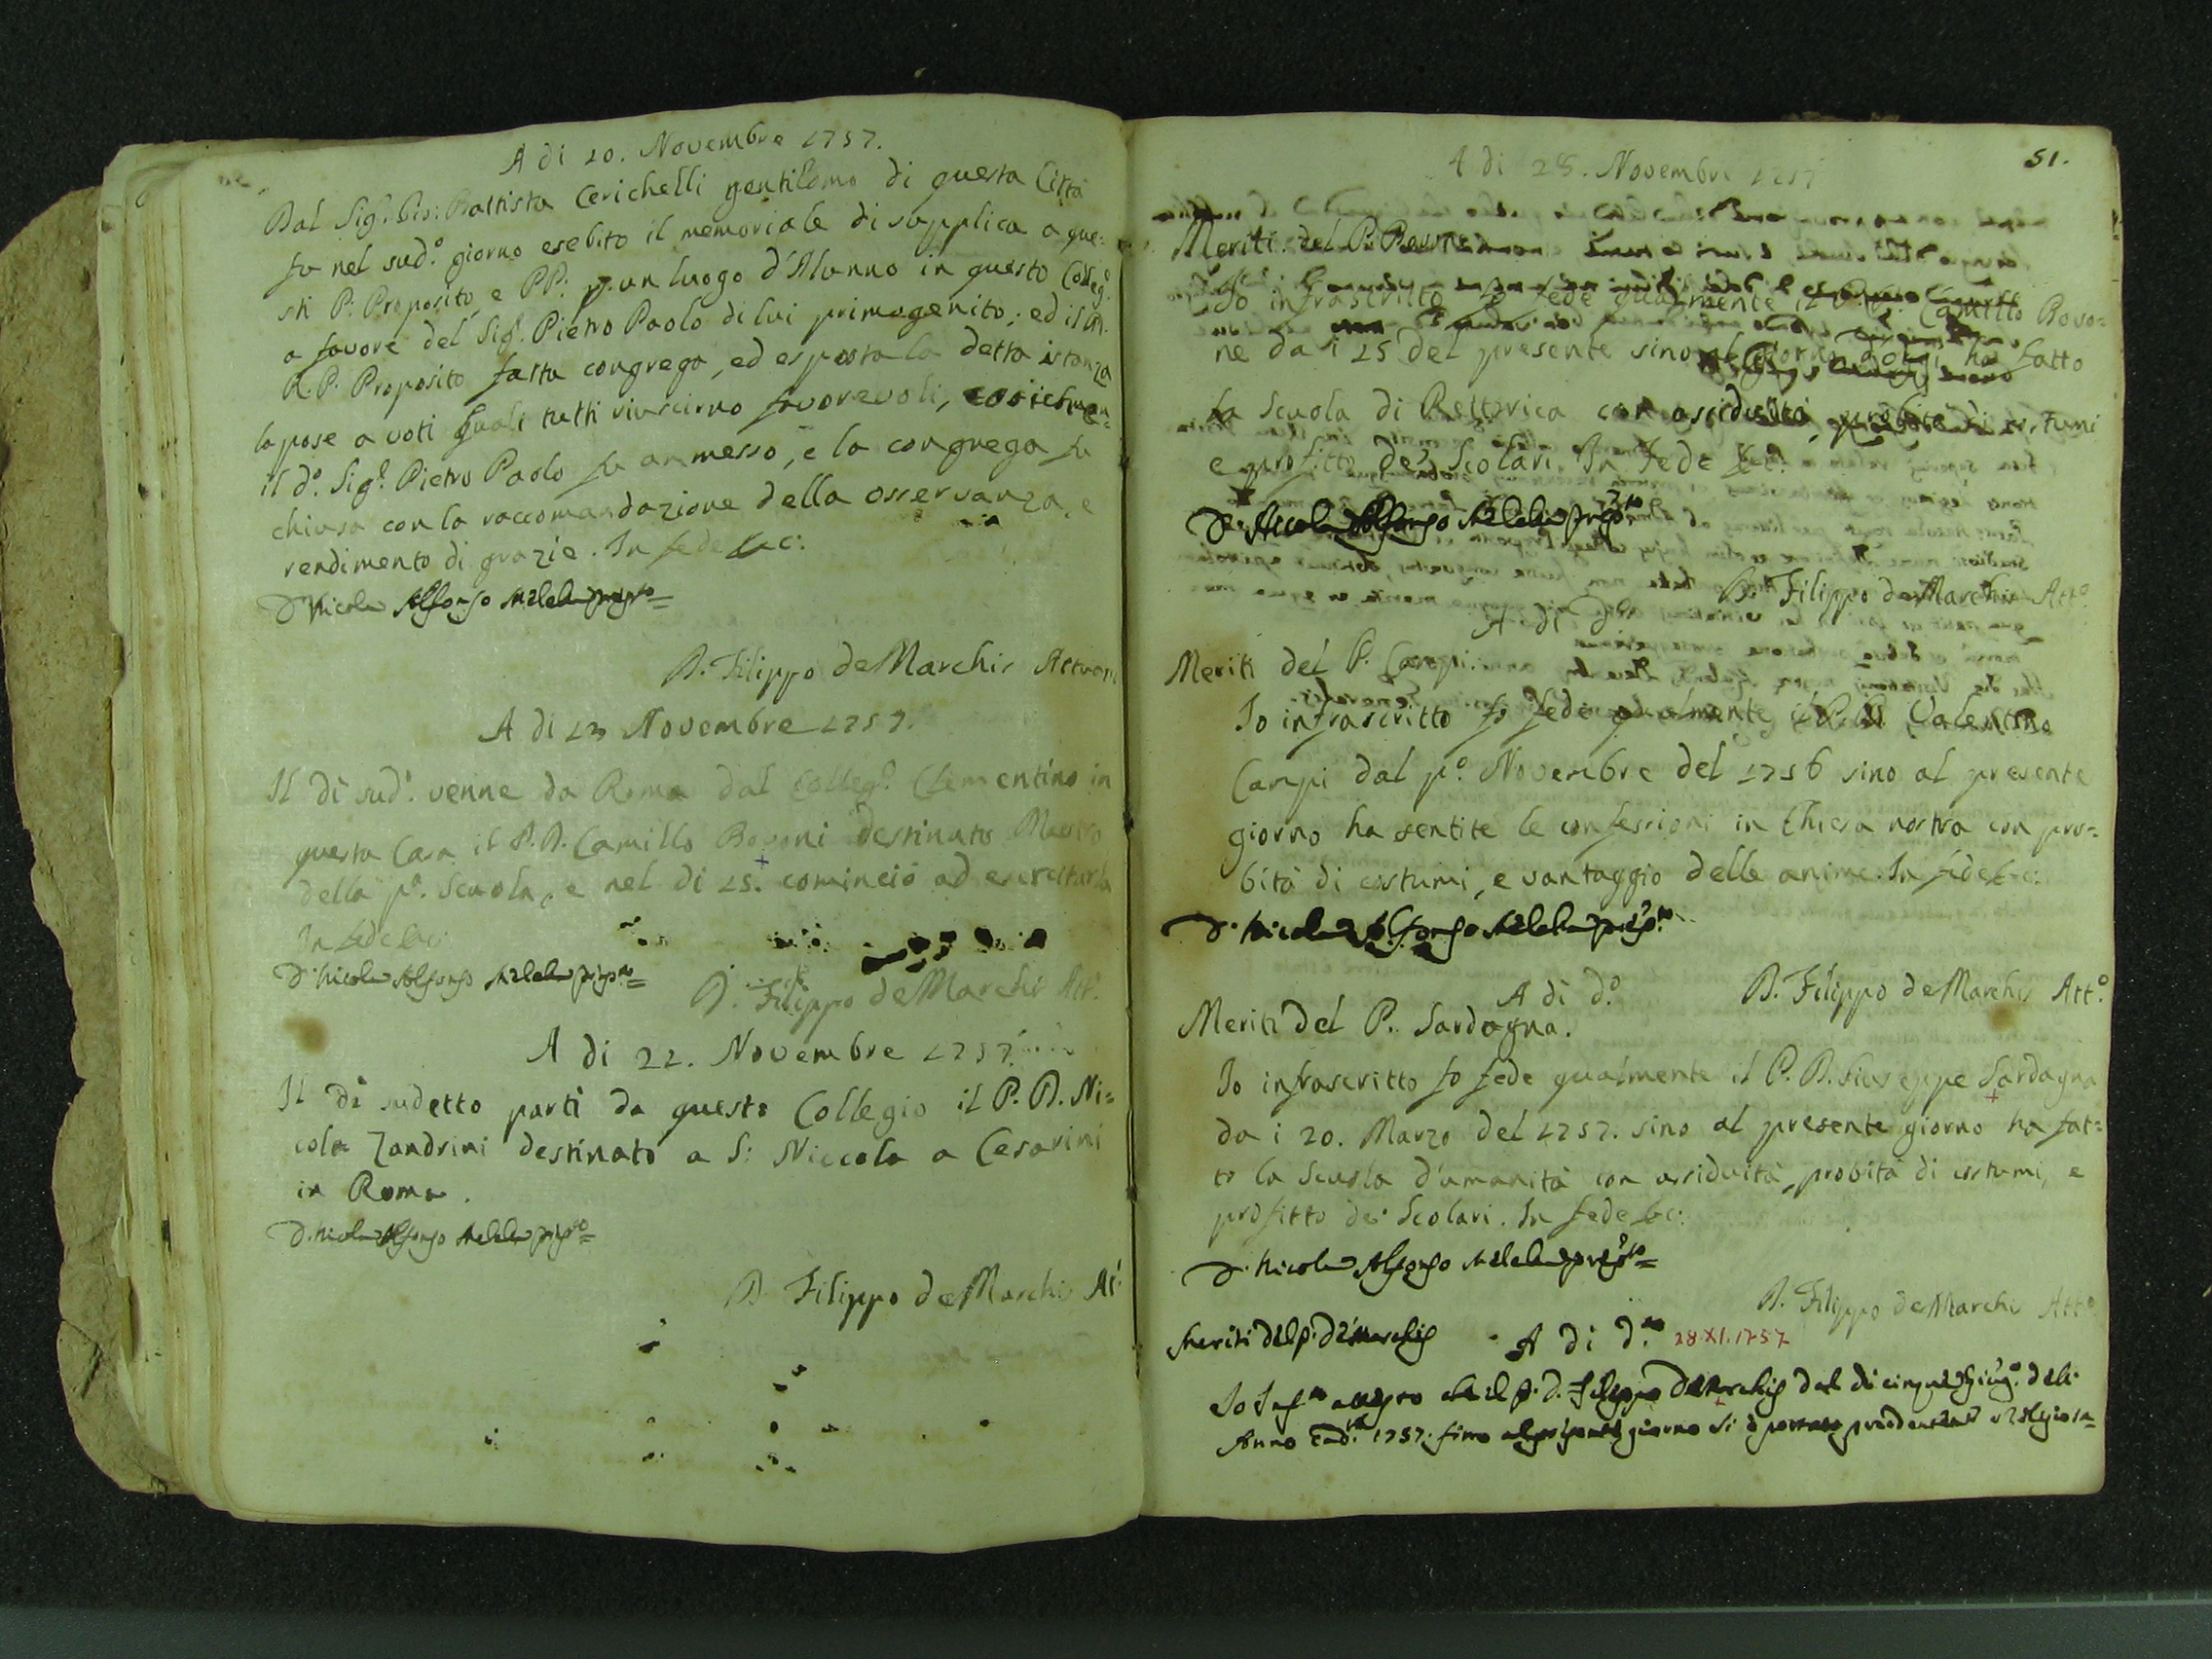 A di 10. Novembre 1757.
Dal Sig.r Gio: Battista Cerichelli gentilomo di questa Città
fu nel sud.o giorno esebito il memoriale di supplica a que=
sti P: Proposito, e PP: p. un luogo d'Alunno in questo Colleg.o
a favore del Sig.r Pietro Paolo di lui primogenito; ed il M.
R. P. Proposito fatta congrega, ed esposta la detta istanza
la pose a voti quali tutti riuscirno favorevoli,
il d.o Sig.r Pietro Paolo fu ammesso, e la congrega fu
chiusa con la raccomandazione della osservanza, e
rendimento di grazie. In fede &c:
D. Nicola Alfonso Melela prep.to=
D. Filippo de Marchis Attuario
A di 13 Novembre 1757.
Il di sud.o venne da Roma dal Colleg.o Clementino in
questa Casa il P. D. Camillo Bovoni destinato Maestro
della p.a Scuola, e nel di 15. cominciò ad esercitarla
In fede &c:
D. Nicola Alfonso Melela prep.to=
D. Filippo de Marchis Att.o
A di 22. Novembre 1757.
Il di sudetto partì da questo Collegio il P. D. Ni=
cola Zandrini destinato a S: Niccola a Cesarini
in Roma.
D. Nicola Alfonso Melela prep.to=
D. Filippo de Marchis At.
51.
A di 28. Novembre 1757
Meriti del P. Bovone
Io infrascritto fo fede qualmente il P. D. Camillo Bovo=
ne da i 15 del presente sino al giorno d'oggi ha fatto
la Scuola di Rettorica con assiduità, probità di costumi
e profitto de' Scolari. In Fede &c:
D. Nicola Alfonso Melela prep.to
D. Filippo de Marchis Att.o
A di d.o
Meriti del P. Campi.
Io infrascritto fo fede qualmente il P. D. Valentino
Campi dal p.o Novembre del 1756 sino al presente
giorno ha sentite le confessioni in Chiesa nostra con pro=
bità di costumi, e vantaggio delle anime. In fede &c:
D. Nicola Alfonso Melela prep.to
D. Filippo de Marchis Att.o
A di d.o
Meriti del P. Sardagna.
Io infrascritto fo fede qualmente il P. D. Giuseppe Sardagna
da i 20. Marzo del 1757. sino al presente giorno ha fat=
to la Scuola d'umanità con assiduità, probità di costumi, e
profitto de' Scolari. In fede &c:
D. Nicola Alfonso Melela prep.to=
D. Filippo de Marchis Att.o
Meriti del p. de Marchis A di d.o 28.XI.1757
Io Inf.tto che il p. D. Filippo de Marchis dal di cinque Giug.o dell'
Anno 1757. sino al presente giorno si è portato religiosa=